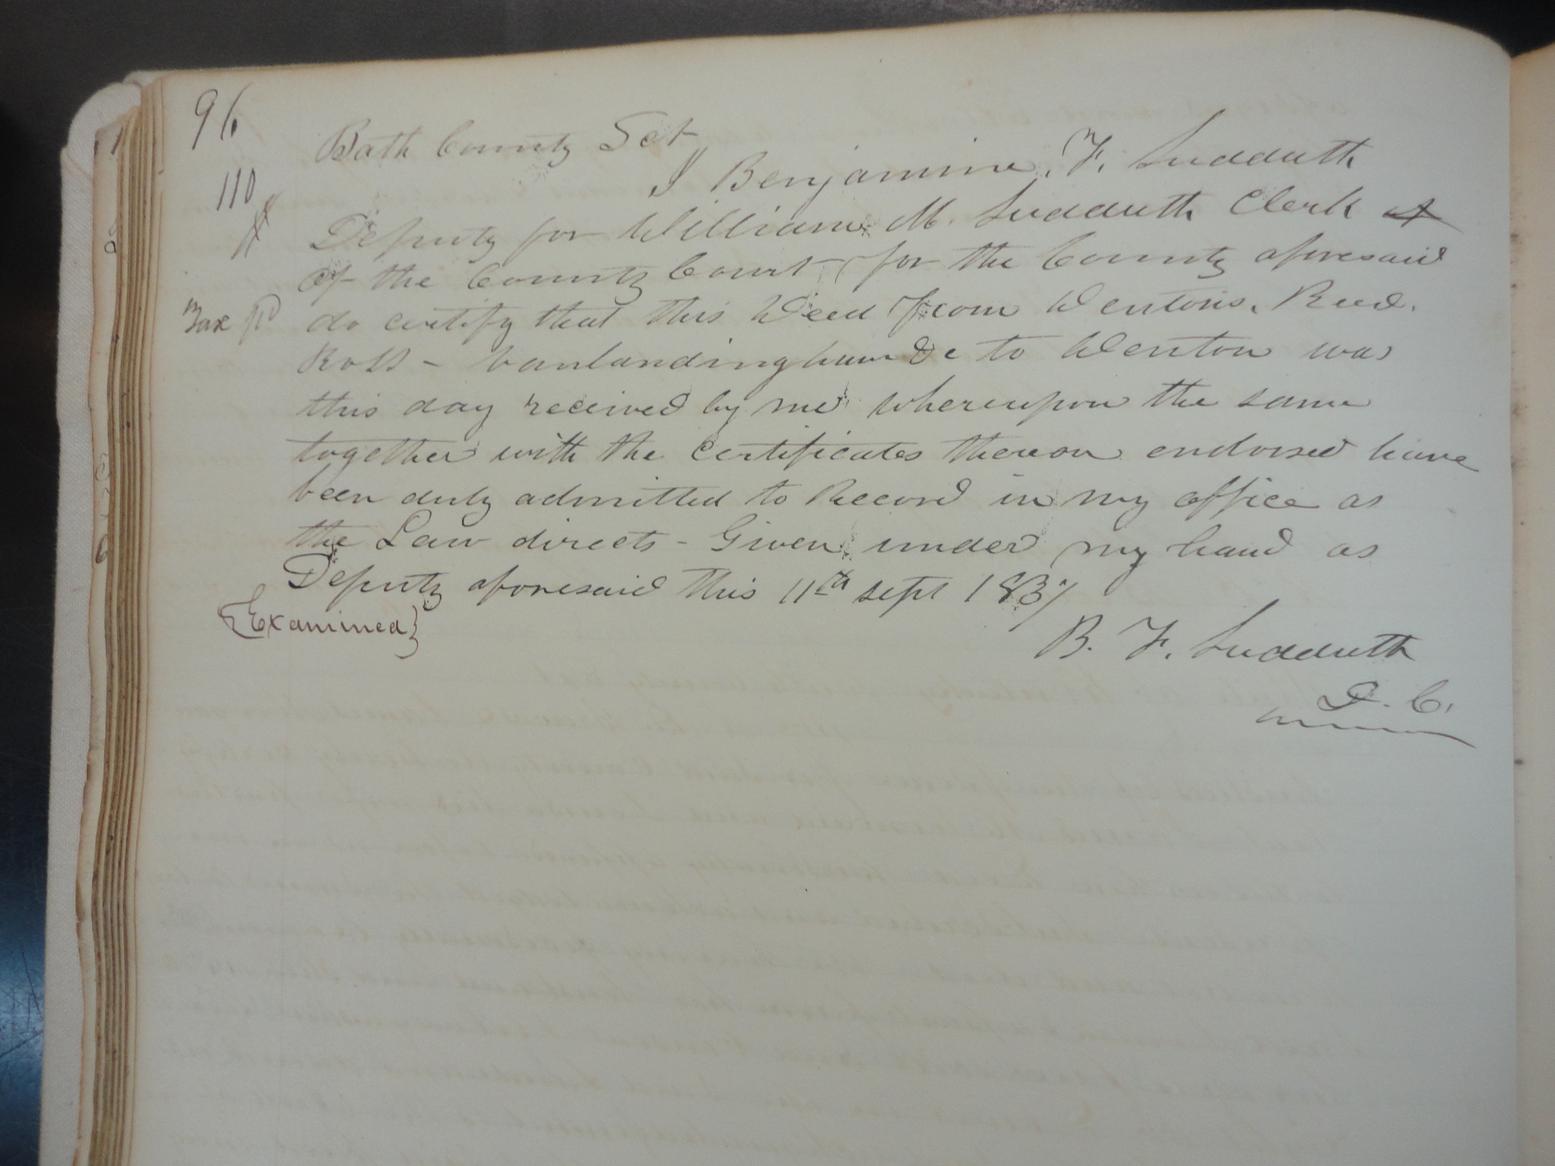 96
Bath County Sct
110
I Benjamine F. Sudduth
Deputy for William M. Sudduth Clerk
of the County Court for the County aforesaid
Tax pd
do certify that this Deed from Dentons, Reed.
Ross - Vanlandingham &c to Denton was
this day received by me whereupon the same
together with the certificates thereon endorsed have
been duly admitted to Record in my office as
the Law directs - Given under my hand as
Deputy aforesaid this 11th sept 1837
{Examined}
B. F. Sudduth
D. C.